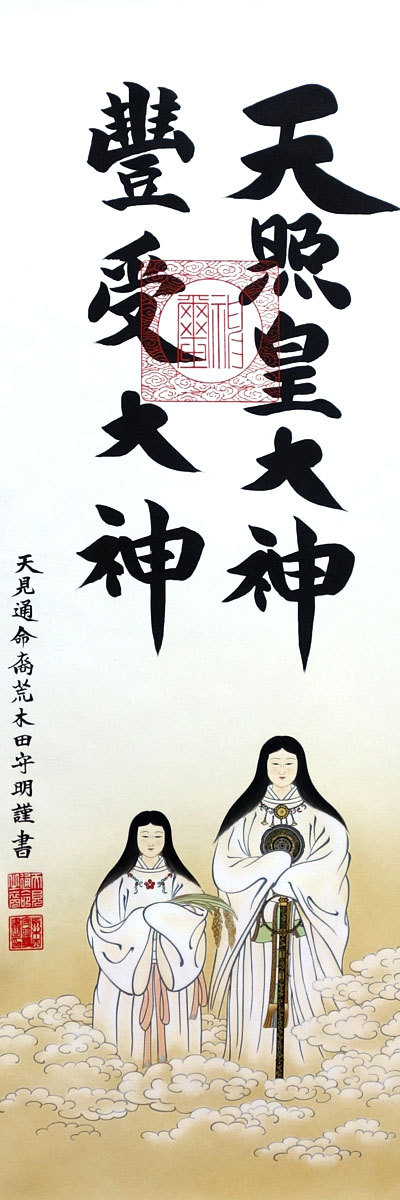 天照皇大神
豐受大神
天見通命裔荒木田守明謹書